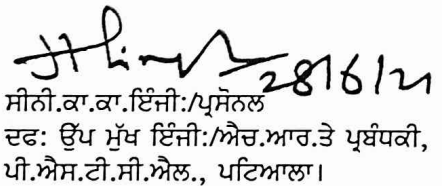 28/6/21
ਸੀਨੀ.ਕਾ.ਕਾ.ਇੰਜੀ:/ਪ੍ਰਸੋਨਲ
ਦਫ: ਉੱਪ ਮੁੱਖ ਇੰਜੀ:/ਐਚ.ਆਰ.ਤੇ ਪ੍ਰਬੰਧਕੀ,
ਪੀ.ਐਸ.ਟੀ.ਸੀ.ਐਲ., ਪਟਿਆਲਾ।